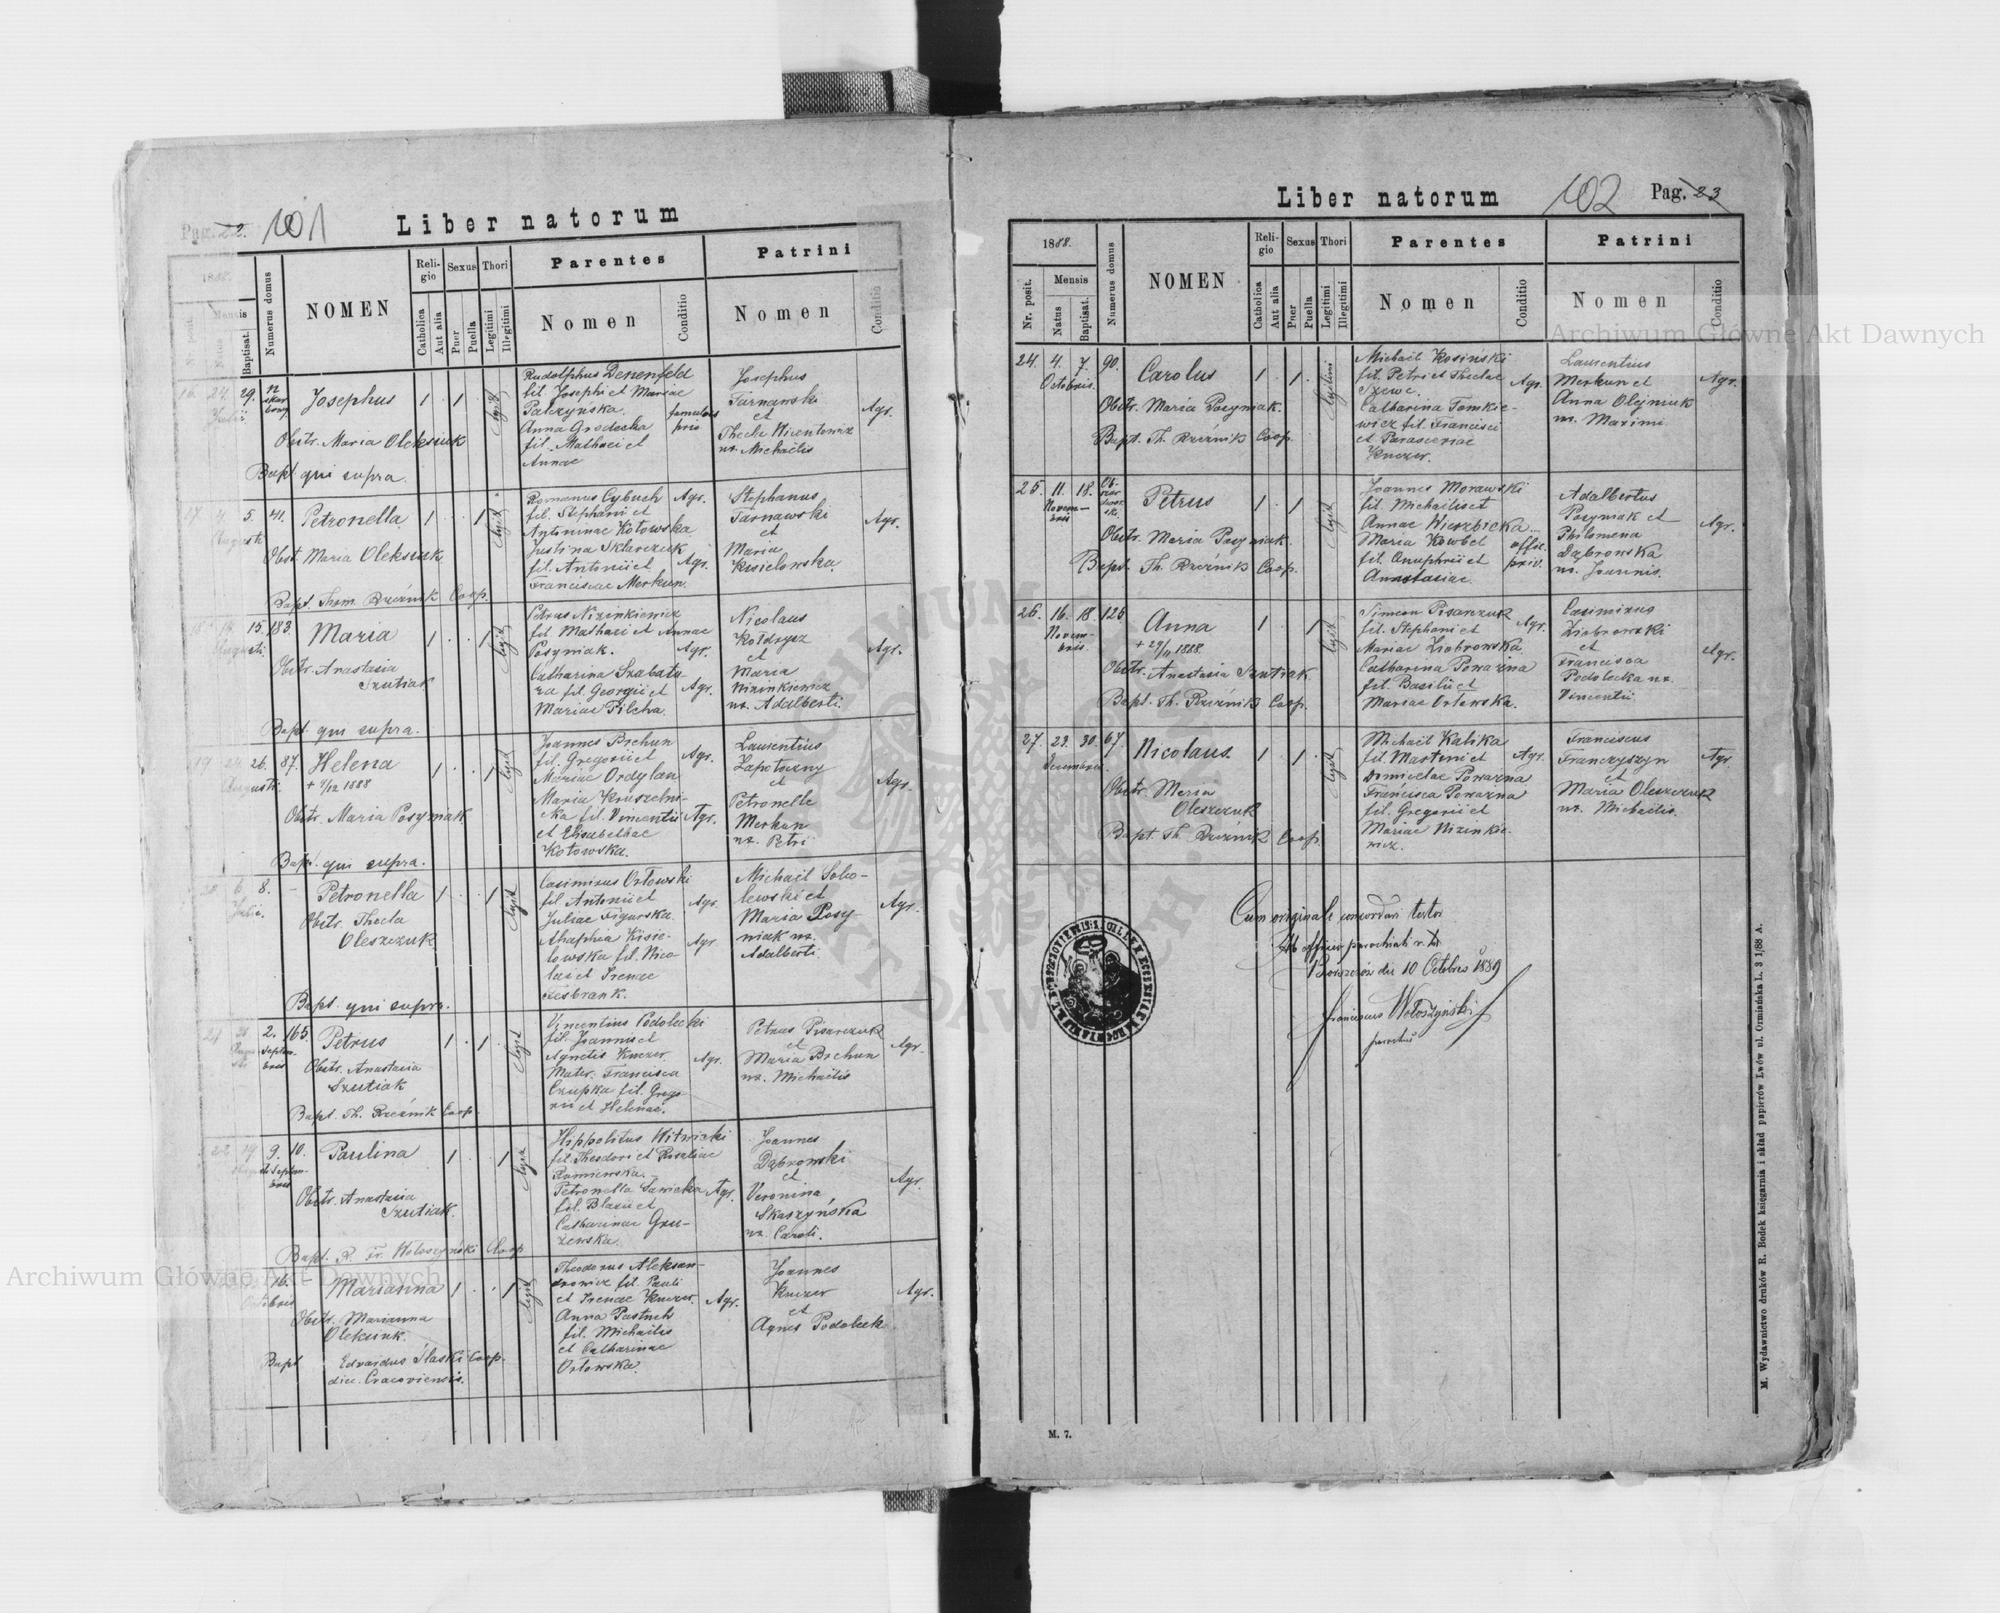 Pag. 22.
101
Liber natorum
1888.
Mensis
Nr. posit.
Natus
Baptisat.
Numerus domus
NOMEN
Religio
Catholica
Aut alia
Sexus
Puer
Puella
Thori
Legitimi
Illegitimi
Parentes
Nomen
Conditio
Patrini
Nomen
Conditio
16. 24. 29. Josephus 1 1 legit.
Julii
Obstr. Maria Oleksiuk
Bapt. qui supra.
Rudolphus Denenfeld
fil. Josephi et Mariae
Palczynska.
Anna Grodecka
fil. Mathaei et
Annae
famulus
priv.
Josephus
Tarnawski
et
Thecla Wicentowicz
ux. Michaëlis
Agr.
17. 4. 5. 41. Petronella 1 1 legit.
Augusti
Obst. Maria Oleksiuk
Bapt. Thom. Rzeźnik Coop.
Romanus Cybuch Agr.
fil. Stephani et
Antoninae Kotowska
Justina Sklarczuk
fil. Antonii et Agr.
Franciscae Merkun.
Stephanus
Tarnawski
et
Maria
Kisielowska.
Agr.
15. 183. Maria 1 1 legit.
Augusti.
Obstr. Anastasia
Szutiak
Bapt. qui supra.
Petrus Nizinkiewicz
fil. Mathaei et Annae
Posyniak. Agr.
Catharina Szabatu
ra fil. Georgii et Agr.
Mariae Pilcha.
Nicolaus
Kołdrycz
et
Maria
Nizinkiewicz
ux. Adalberti.
Agr.
19 24 26. 87. Helena 1 1 legit
Augusti. + 4/12 1888
Obstr. Maria Posyniak
Bapt. qui supra.
Joannes Brchun
fil. Gregorii et Agr.
Mariae Ordylan
Maria Kruszelni-
cka fil. Vincentii Agr.
et Elisabethae
Kotowska.
Laurentius
Zapotoczny
et
Petronella
Merkun
ux. Petri
Agr.
20 6. 8. – Petronella 1 1 legit
Julii.
Obstr. Thecla
Oleszczuk
Bapt. qui supra.
Casimirus Orłowski
fil. Antonii et Agr.
Juliae Figurska.
Ahaphia Kisie-
lowska fil. Nico- Agr.
lai et Irenae
Fesbrank.
Michaël Sobo-
lewski et
Maria Posy-
niak ux.
Adalberti.
Agr.
21 31 2. 165. Petrus 1 1 legit
Septem-
bris
Obstr. Anastasia
Szutiak
Bapt. Th. Rzeźnik Coop.
Vincentius Podolecki
fil. Joannis et
Agnetis Knezer.
Mater. Francisca Agr.
Czupka fil. Grego
rii et Helenae.
Petrus Pisarczuk
et
Maria Brchun
ux. Michaëlis
Agr.
22 9. 10. Paulina 1 1 legit
Septem-
bris
Obstr. Anastasia
Szutiak.
Bapt. R. Fr. Wołoszyński Coop
Hippolitus Witwicki
fil. Theodori et Rosaliae
Raniewska.
Petronella Sawicka Agr.
fil. Blasii et
Catharinae Gru-
zewska.
Joannes
Dąbrowski
et
Veronina
Skaszyńska
ux. Caroli.
Agr.
16. – Marianna 1 1 legit
Octobris
Obstr. Marianna
Oleksiuk.
Bapt Edvardus Ślaski Coop.
diec. Cracoviensis.
Theodorus Aleksan-
drowicz fil. Pauli
et Irenae Knezer. Agr.
Anna Pastuch
fil. Michaëlis
et Catharinae
Orłowska.
Joannes
Knezer
et
Agnes Podolecka
Agr.
Liber natorum
102
Pag. 23
1888.
Nr. posit.
Mensis
Natus
Baptisat.
Numerus domus
NOMEN
Religio
Catholica
Aut alia
Sexus
Puer
Puella
Thori
Legitimi
Illegitimi
Parentes
Nomen
Conditio
Patrini
Nomen
Conditio
24. 4. 7. 90. Carolus 1 1 legitimi
Octobris.
Obstr. Maria Posyniak.
Bapt. Th. Rzeźnik Coop.
Michaël Kosiński
fil. Petri et Theclae Agr.
Szewc.
Catharina Tomkie-
wicz fil. Francisci
et Parasceviae
Knezer.
Laurentius
Merkun et
Anna Olejniuk
ux. Maximi
Agr.
25. 11. 18. Petrus 1 1 legit
Novem-
bris
Obstr. Maria Posyniak.
Bapt. Th. Rzeźnik Coop.
Joannes Morawski
fil. Michaëlis et
Annae Wierzbicka
Maria Kowbel offic.
fil. Onuphrii et priv.
Anastasiae
Adalbertus
Posyniak et
Philomena
Dąbrowska
ux. Joannis.
Agr.
26. 16. 18. 125 Anna 1 1 legit.
Novem-
bris. + 29/11 1888.
Obstr. Anastasia Szutiak
Bapt. Th. Rzeźnik Coop.
Simeon Pisarczuk
fil. Stephani et Agr.
Mariae Ziobrowska.
Catharina Poważna
fil. Basilii et
Mariae Orłowska.
Casimirus
Ziobrowski
et
Francisca
Podolecka ux.
Vincentii
Agr.
27. 23. 30. 67. Nicolaus 1 1 legit
Decembris.
Obstr. Maria
Oleszczuk
Bapt. Th. Rzeźnik Coop.
Michaël Kalika
fil. Martini et Agr.
Domicelae Poważna
Francisca Poważna
fil. Gregorii et
Mariae Nizinkie-
wicz.
Franciscus
Franczyszyn
et
Maria Oleszczuk
ux. Michaëlis.
Agr
Cum originali concordari testor
Ab officio parochiali r. lat
die 10 Octobris 1889
Franciscus Wołoszyński
parochus
M. 7.
M. Wydawnictwo druków R. Bodek księgarnia i skład papierów Lwów ul. Ormiańska L. 3 1/88 A.
Archiwum Główne Akt Dawnych
Archiwum Główne Akt Dawnych